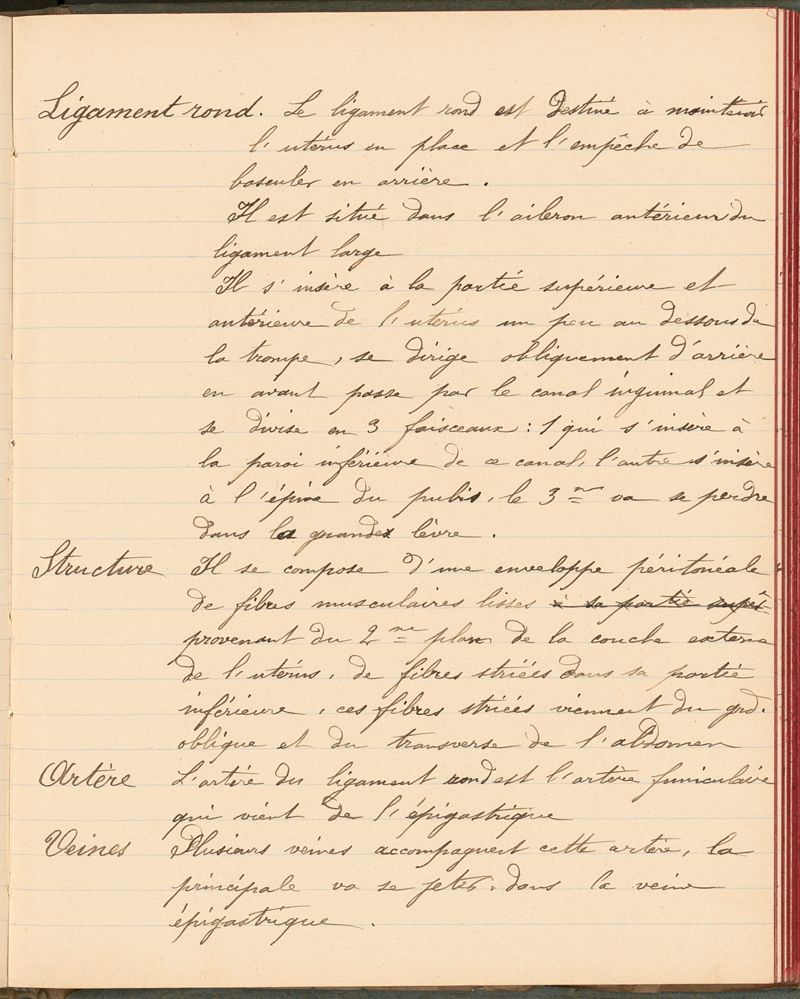 Ligament rond. Le ligament rond est destiné à maintenir
l'utérus en place et l'empêche de
basculer en arrière.
Il est situé dans l'aileron antérieur du
ligament large
Il s'insère à la partie supérieure et
antérieure de l'utérus un peu au dessous de
la trompe, se dirige obliquement d'arrière
en avant passe par le canal inguinal et
se divise en 3 faisceaux : 1 qui s'insère à
la paroi inférieure de ce canal, l'autre s'insère
à l'épine du pubis, le 3me va se perdre
dans la grande lèvre.
Structure Il se compose d'une enveloppe péritonéale
de fibres musculaires lisses à sa partie supér
provenant du 2me plan de la couche externe
de l'utérus, de fibres striées dans sa partie
inférieure, ces fibres striées viennent du grd.
oblique et du transverse de l'abdomen
Artère L'artère du ligament rond est l'artère funiculaire
qui vient de l'épigastrique
Veines Plusieurs veines accompagnent cette artère, la
principale va se jeter dans la veine
épigastrique.